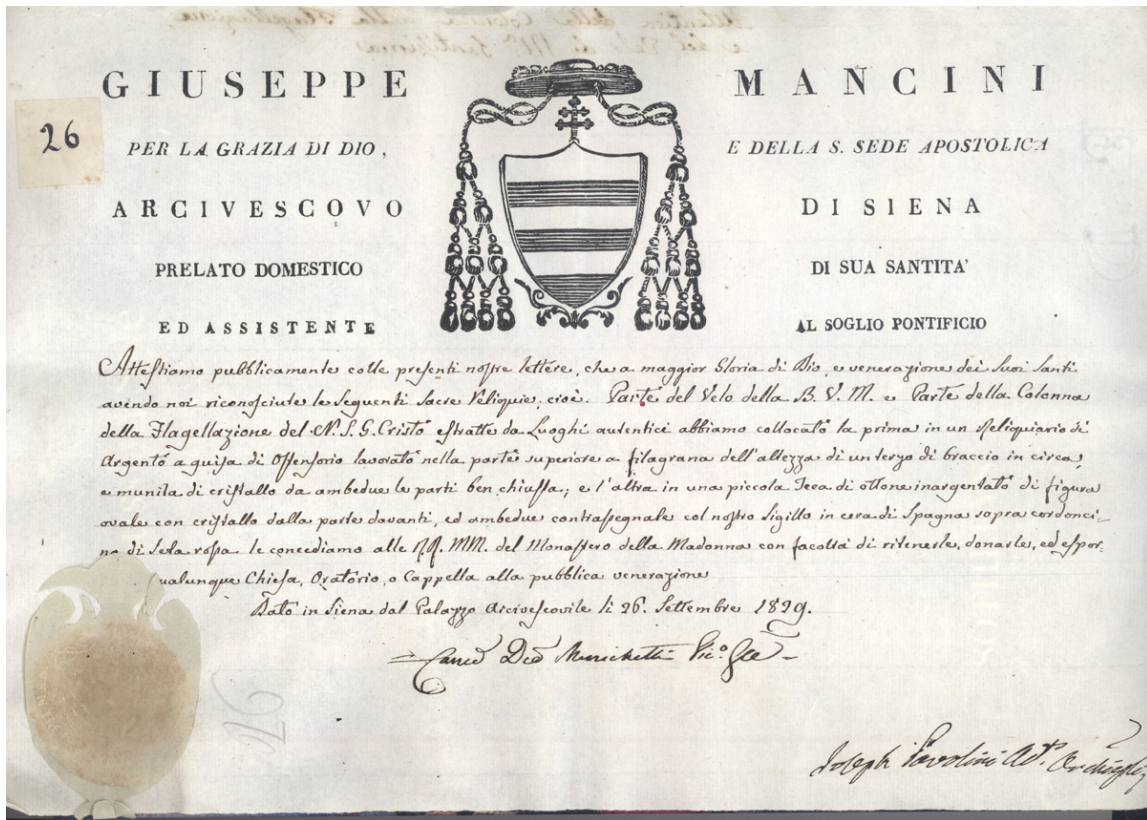 GIUSEPPE MANCINI
26
PER LA GRAZIA DI DIO, E DELLA S. SEDE APOSTOLICA
ARCIVESCOVO DI SIENA
PRELATO DOMESTICO DI SUA SANTITA'
ED ASSISTENTE AL SOGLIO PONTIFICIO
Attestiamo pubblicamente colle presenti nostre lettere, che a maggior Gloria di Dio, e venerazione dei Suoi Santi
avendo noi riconosciute le seguenti Sacre Reliquie, cioè. Parte del Velo della B. V. M. e Parte della Colonna
della Flagellazione del N. S. G. Cristo estratte da Luoghi autentici abbiamo collocato la prima in un Reliquiario di
Argento a guisa di Ostensorio lavorato nella parte superiore a filagrana dell'altezza di un terzo di braccio in circa,
e munita di cristallo da ambedue le parti ben chiusa; e l'altra in una piccola Teca di ottone inargentato di figura
ovale con cristallo dalla parte davanti, ed ambedue contrassegnate col nostro Sigillo in cera di Spagna sopra cordonci-
no di Seta rossa le concediamo alle RR. MM. del Monastero della Madonna con facoltà di ritenerle, donarle, ed espor-
ualunque Chiesa, Oratorio, o Cappella alla pubblica venerazione
Dato in Siena dal Palazzo Arcivescovile li 26. Settembre 1829.
Vic.o
26
Joseph